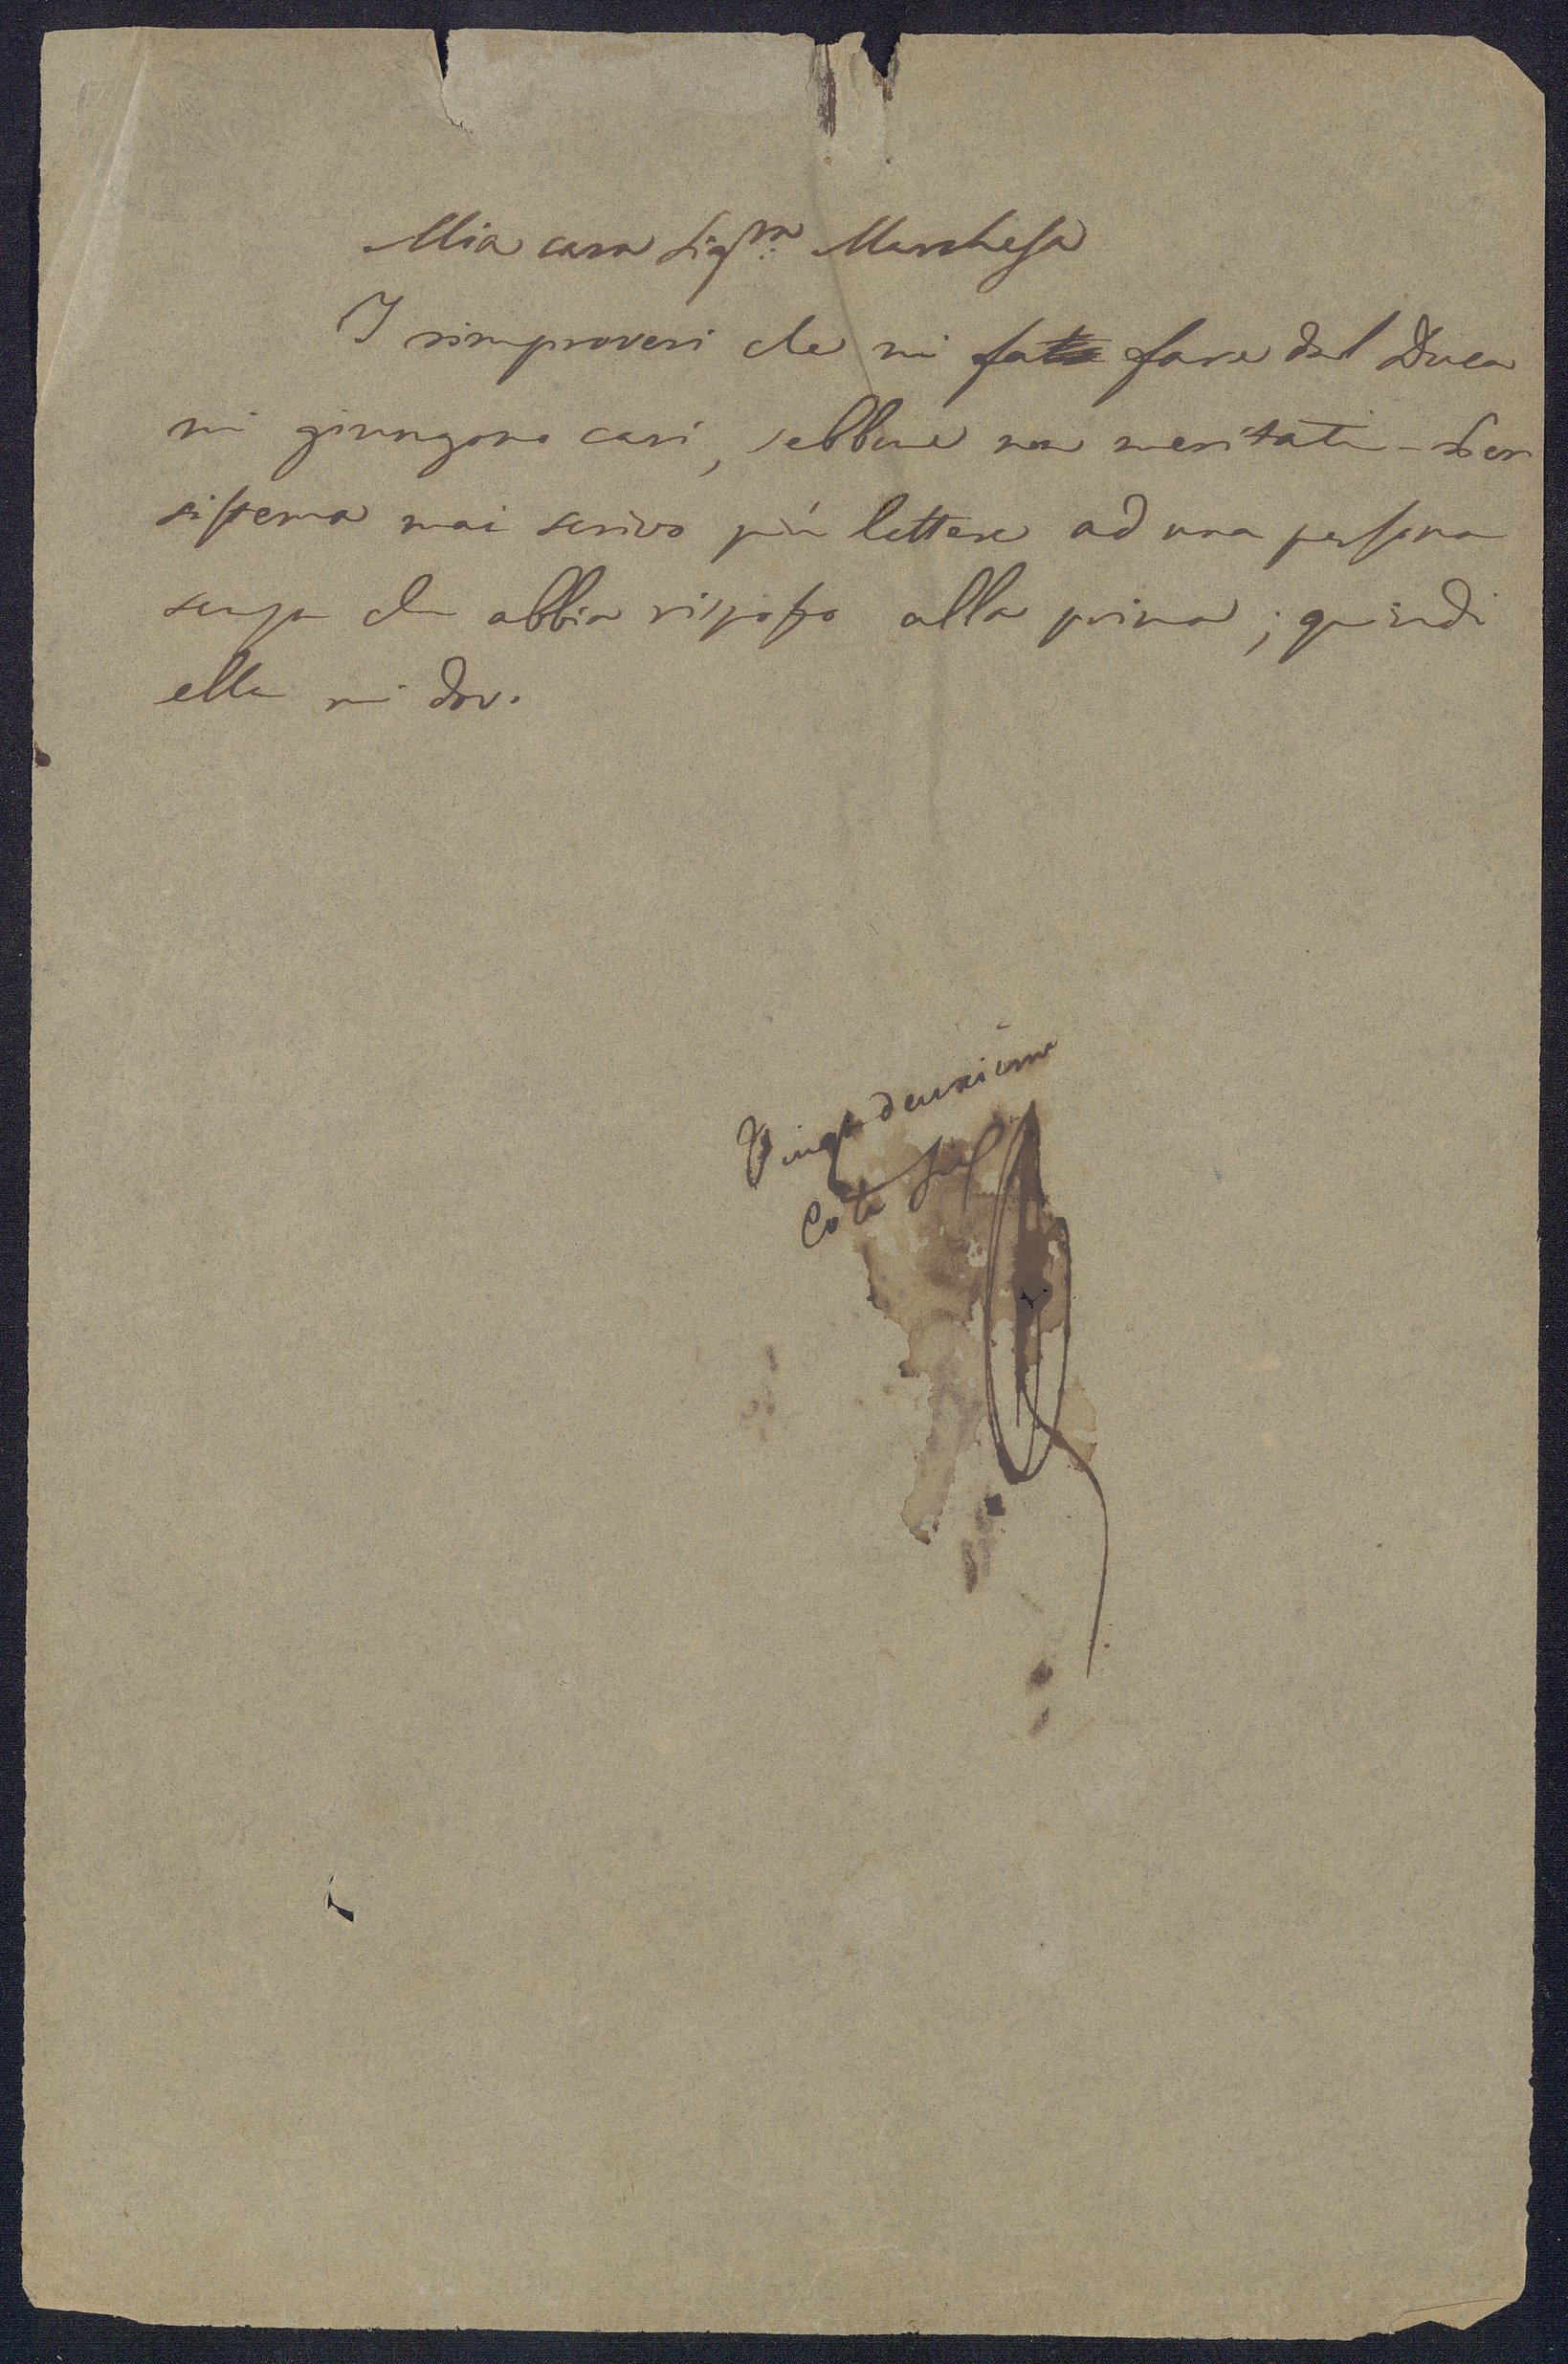 Mia cara Sig.ra Marchesa
I rimproveri che mi fate fare dal Duca
mi giungono cari, sebbene non meritati - Per
sistema mai scrivo più lettere ad una persona
senza che abbia risposto alla prima; quindi
ella mi dov.
Vingt deuxième
Cote